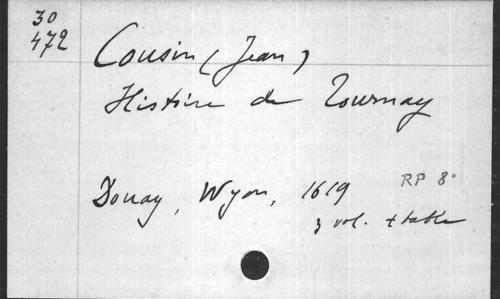 30
472
Cousin (Jean)
Histoire de Tournay
Douay, Wyon, 1619 RP 8°
3 vol. + table